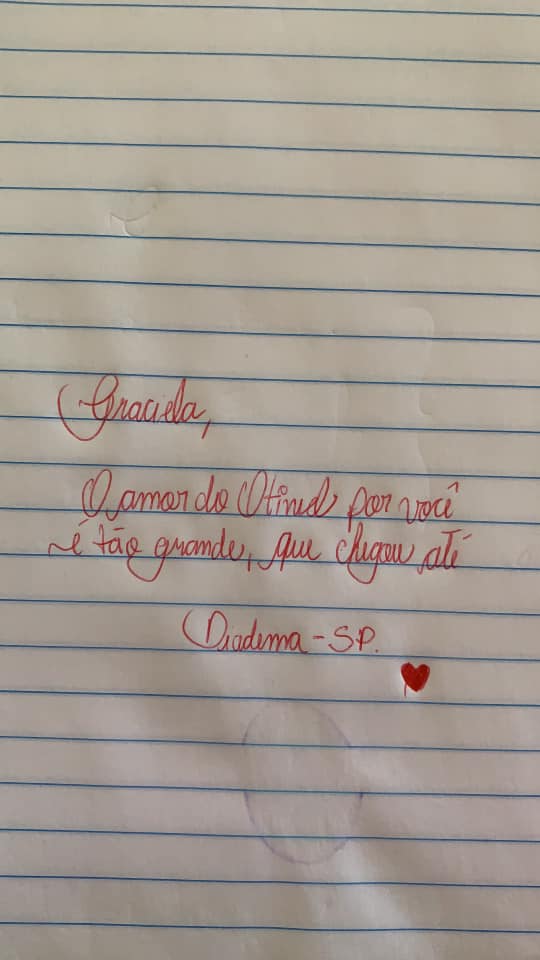 Graciela,
O amor do Otined por você
é tão grande, que chegou até
Diadema - SP.